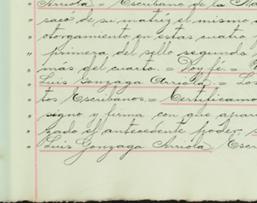 " Arriola = Escribano de la Na
" sacó de su matriz el mismo d
" otorgamiento en estas cuatro
" primera del sello segundo
" más del cuarto. = Doy fé. =
" Luis Gonzaga Arriola. = Los
" tos Escribanos. = Certificamos
" signo y firma con que apare
" zado el antecedente poder
" Luis Gonzaga Arriola, Escri